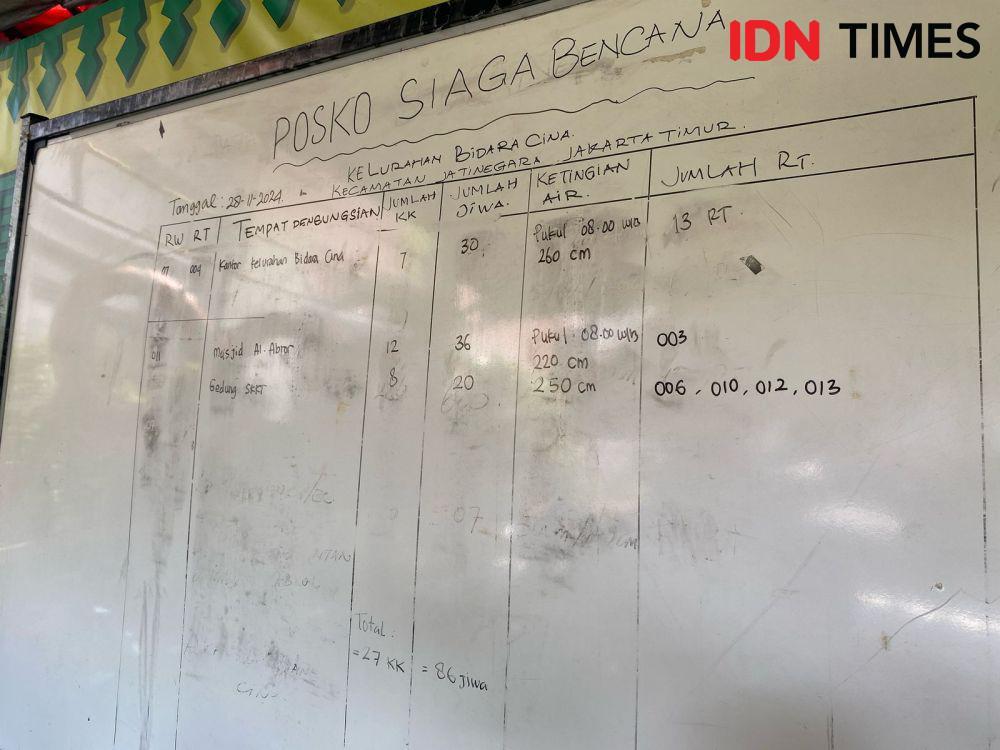 IDN TIMES
POSKO SIAGA BENCANA
KELURAHAN BIDARA CINA.
KECAMATAN JATINEGARA JAKARTA TIMUR.
Tanggal : 28-11-2024.
RW RT TEMPAT PENGUNGSIAN JUMLAH KK JUMLAH JIWA. KETINGIAN AIR. JUMLAH RT.
004 Kantor Kelurahan Bidara Cina 7 30 Pukul 08.00 WIB 13 RT.
260 cm
011 Masjid Al-Abror 12 36 Pukul : 08.00 WIB 003
220 cm
Gedung SKKT 8 20 250 cm 006, 010, 012, 013
07
Total :
= 27 KK = 86 jiwa